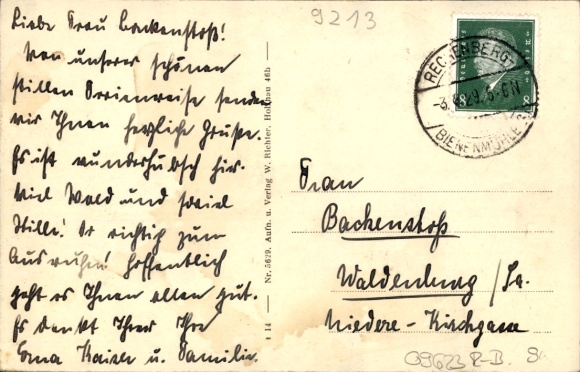 Liebe Frau Backenstoß!
Von unserer schönen
stillen Ferienreise senden
wir Ihnen herzliche Grüße.
Es ist wunderhübsch hier.
Viel Wald und soviel
Stille! So richtig zum
Ausruhen! Hoffentlich
geht es Ihnen allen gut.
Es denkt Ihrer Ihre
Erna Kaiser u. Familie.
9213
RECHENBERG
BIENENMÜHLE
Nr. 5629. Aufn. u. Verlag W. Richter, Holzhau 46b
t 14
Frau
Backenstoß
Waldenburg / Sa.
Niedere-Kirchgasse
09623 R-B.